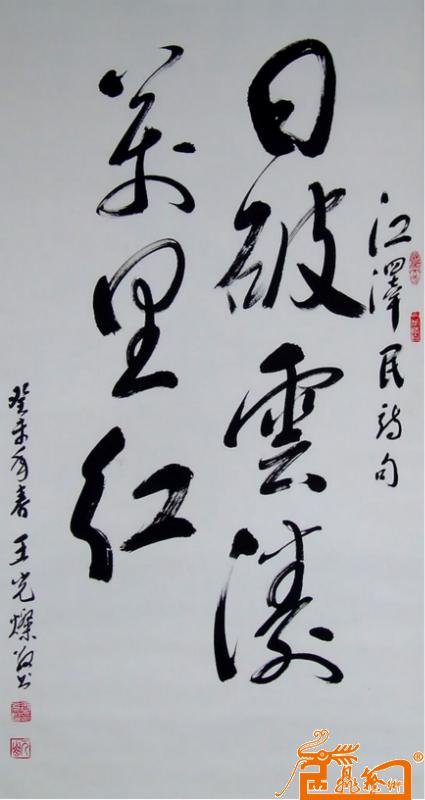 江澤民詩句
日破雲濤
萬里紅
癸未年春 王光燦敬書